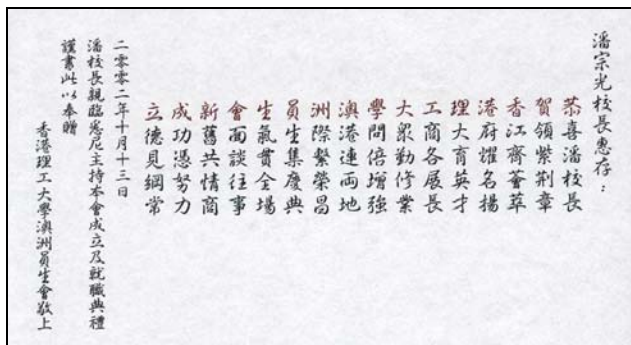 潘宗光校長惠存：
恭喜潘校長
賀領紫荊章
香江齊薈萃
港府耀名揚
理大育英才
工商各展長
大衆勤修業
學問倍增強
澳港連両地
洲際繫榮昌
員生集慶典
生氣貫全場
會面談往事
新舊共情商
成功憑努力
立德見綱常
二零零二年十月十三日
潘校長親臨悉尼主持本會成立及就職典禮
謹書此以奉贈
香港理工大學澳洲員生會敬上